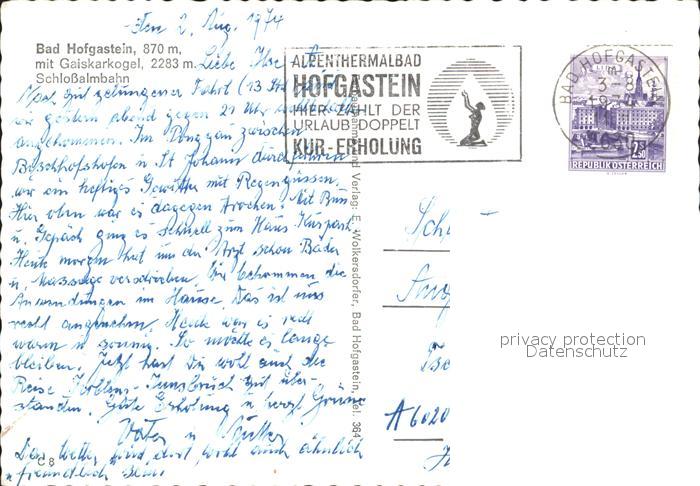 Den 2. Aug. 1974
Bad Hofgastein, 870 m,
mit Gaiskarkogel, 2283 m.
Schloßalmbahn
Liebe Ilse!
Nach gut gelungener Fahrt (13 Std) sind
wir gestern abend gegen 21 Uhr
angekommen. Im Pongau zwischen
Bischofshofen u. St Johann durchfuhren
wir ein heftiges Gewitter mit Regengüssen.
Hier oben war es dagegen trocken. Mit
u. Gepäck ging es schnell zum Haus Kurpark.
Heute morgen hat uns der Arzt schon Bäder
u. Massage verschrieben. Wir bekommen die
Anwendungen im Hause. Das ist uns
recht angenehm. Heute war es recht
warm u. sonnig. So möchte es lange
bleiben. Jetzt hast Du wohl auch die
Reise Koblenz - Innsbruck gut über-
standen. Gute Erholung u. herzl. Grüße
Vater u. Mutter
Das Wetter wird dort wohl auch ähnlich
freundlich sein.
C 8
ALPENTHERMALBAD
HOFGASTEIN
HIER ZÄHLT DER
URLAUB DOPPELT
KUR-ERHOLUNG
BAD HOFGASTEIN
REPUBLIK ÖSTERREICH
2.50
Verlag: E. Wolkersdorfer, Bad Hofgastein, Tel. 364
A 6020
privacy protection
Datenschutz